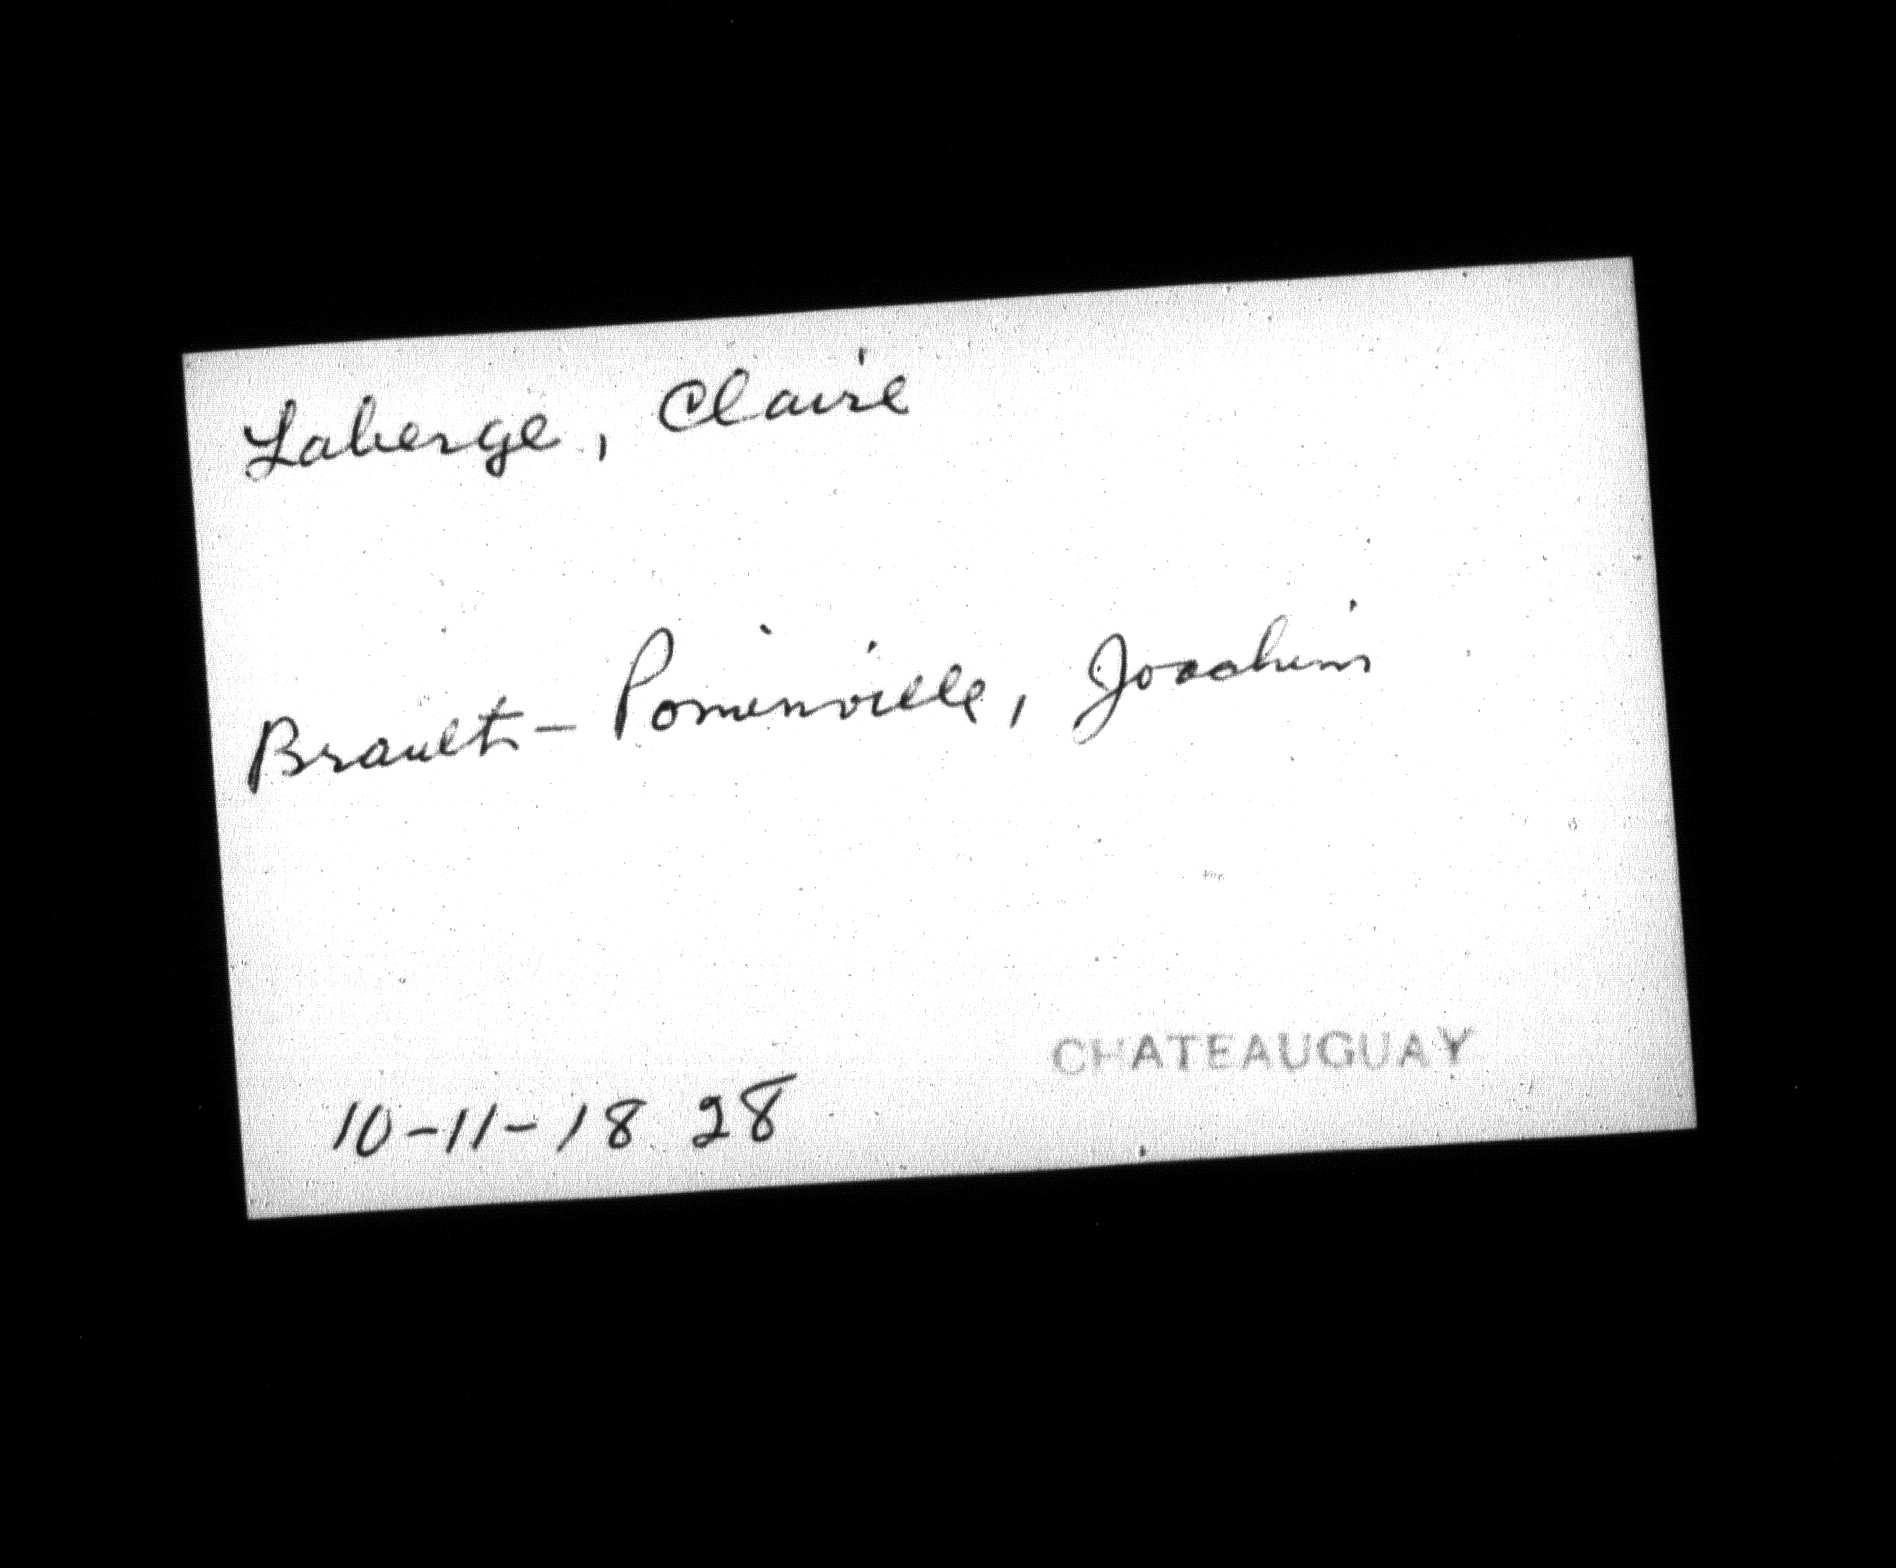 Laberge, Claire
Brault-Pominville, Joachim
CHATEAUGUAY
10-11-18 28